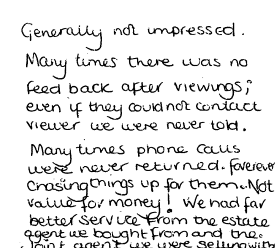 Generally not impressed.
Many times there was no
feed back after viewings;
even if they could not contact
viewer we were never told.
Many times phone calls
were never returned. forever
chasing things up for them. Not
value for money! We had far
better service from the estate
agent we bought from and the
Joint agent we were selling with